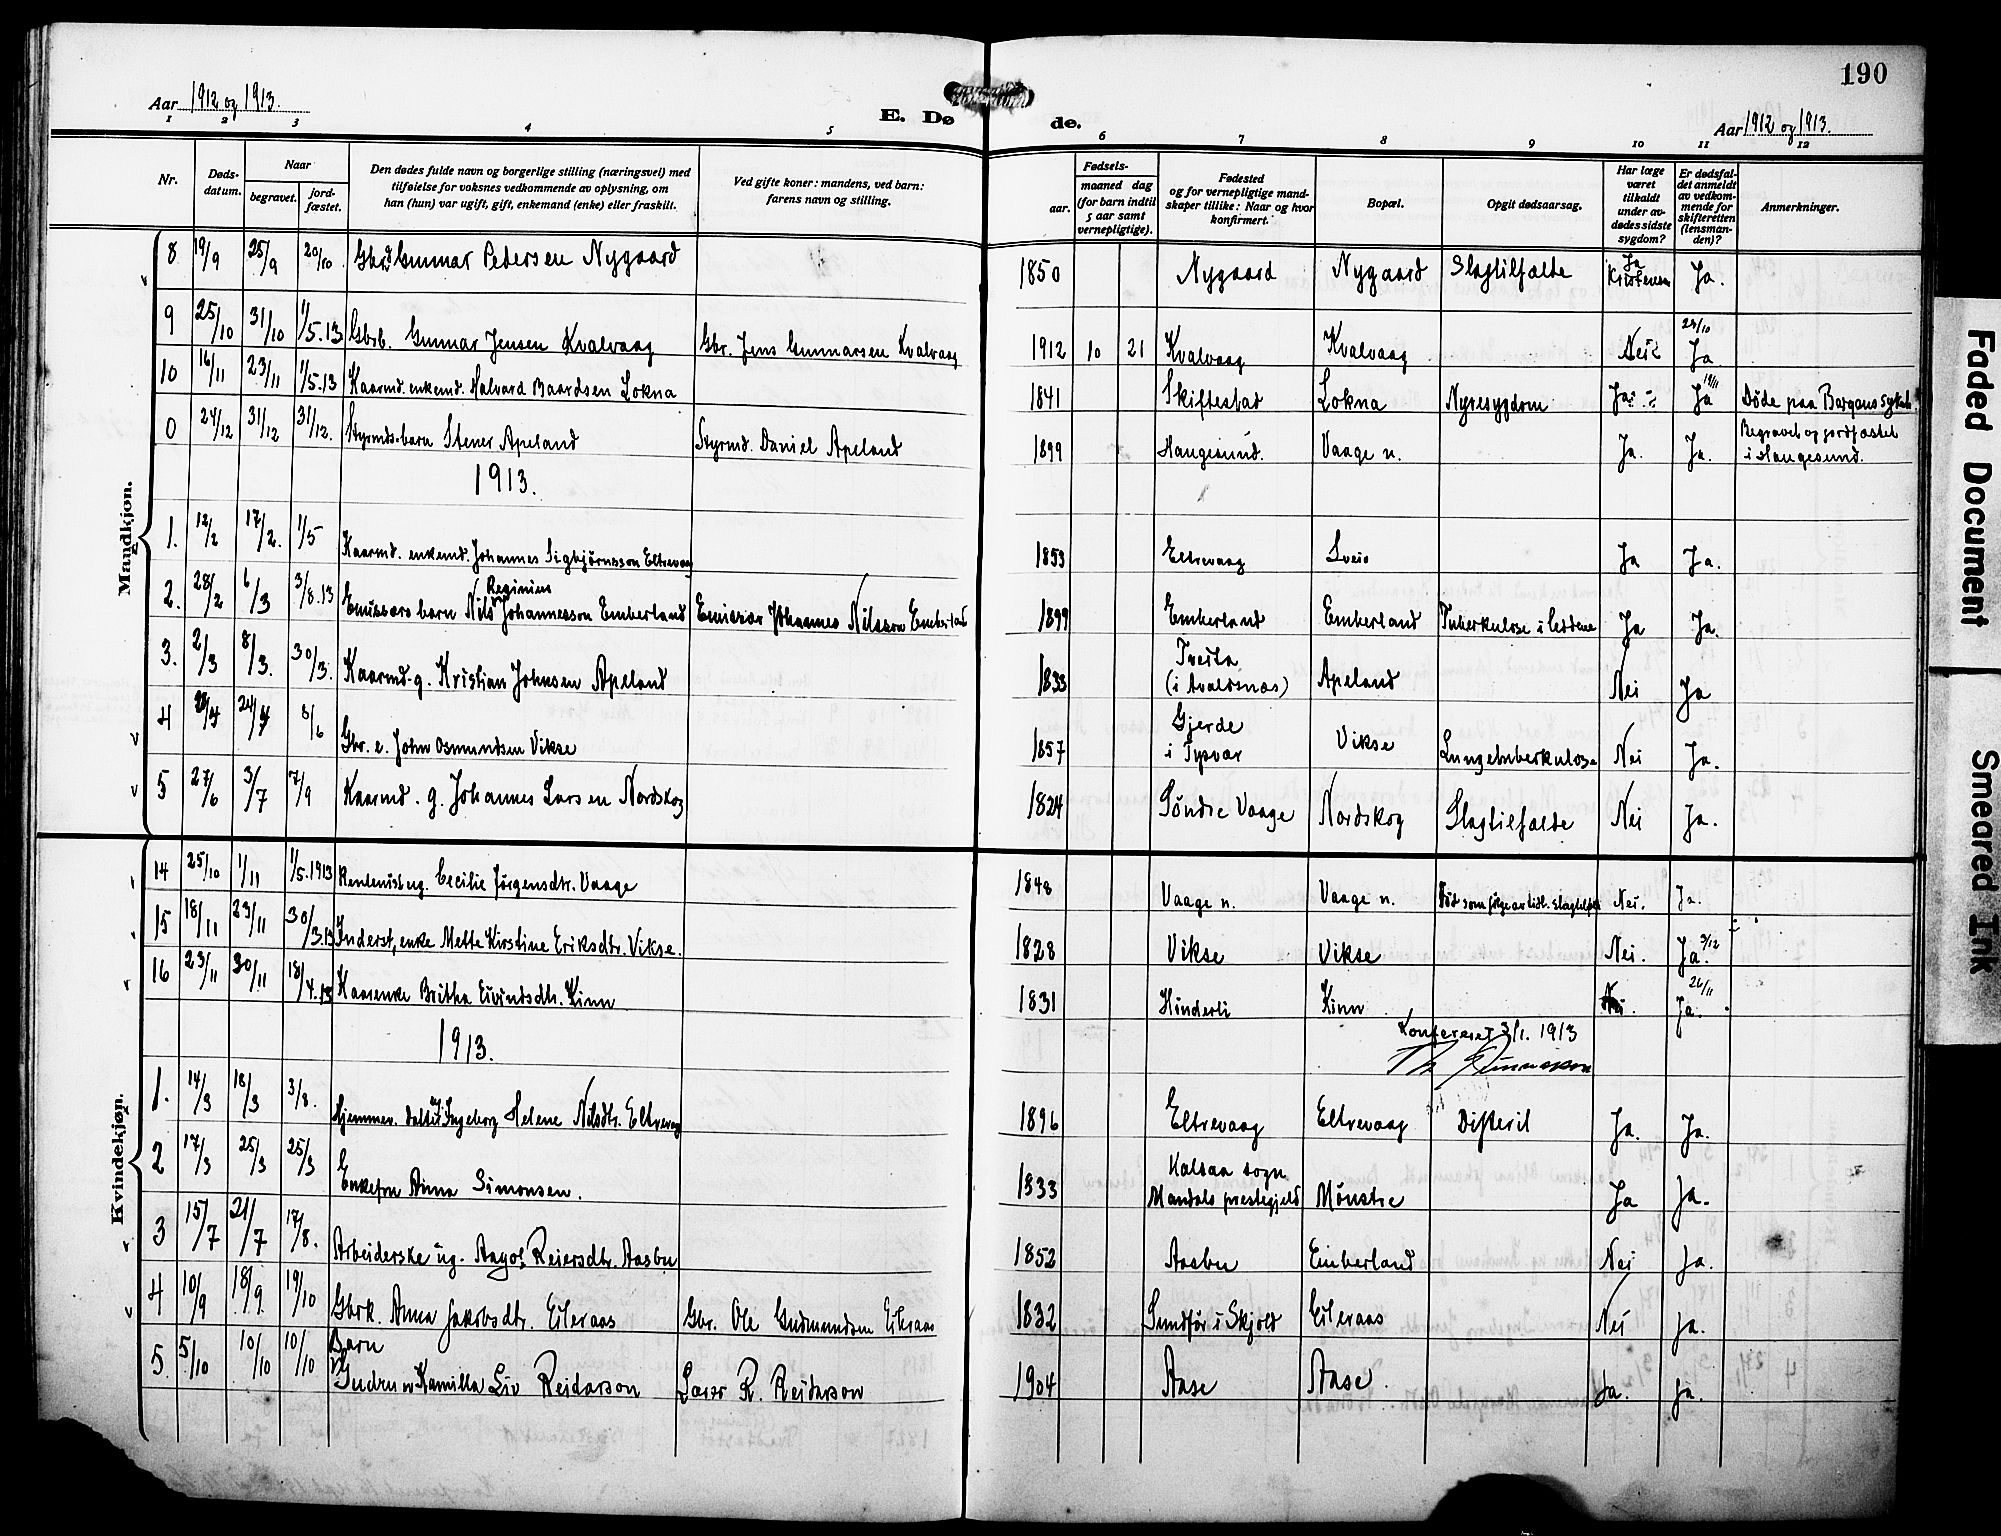 190
Aar 1912 og 1913.
E. Dø de.
Aar 1912 og 1913.
1 2 3 4 5 6 7 8 9 10 11 12
Nr.
Døds-datum.
Naar
begravet.
jord-fæstet.
Den dødes fulde navn og borgerlige stilling (næringsvei) med
tilføielse for voksnes vedkommende av oplysning, om
han (hun) var ugift, gift, enkemand (enke) eller fraskilt.
Ved gifte koner: mandens, ved barn:
farens navn og stilling.
Fødsels-
aar.
maaned dag
(for barn indtil
5 aar samt
vernepligtige).
Fødested
og for vernepligtige mand-
skaper tillike: Naar og hvor
konfirmert.
Bopæl.
Opgit dødsaarsag.
Har læge
været
tilkaldt
under av-
dødes sidste
sygdom?
Er dødsfal-
det anmeldt
av vedkom-
mende for
skifteretten
(lensman-
den)?
Anmerkninger.
Mandkjøn.
8 19/9 25/9 20/10 Gbr. Gunnar Petersen Nygaard 1850 Nygaard Nygaard Slagtilfælde Ja Kristensen Ja.
9 25/10 31/10 1/5.13 Gbrb. Gunnar Jensen Kvalvaag Gbr. Jens Gunnarsen Kvalvaag 1912 10 21 Kvalvaag Kvalvaag Nei 29/10 Ja
10 16/11 23/11 1/5.13 Kaarmd. enkemd. Halvard Baardsen Lokna 1841 Skiftestad Lokna Nyresygdom Ja 19/11 Ja Døde paa Bergens sykeh.
0 24/12 31/12 31/12. Styrmds. barn Stener Apeland Styrmd. Daniel Apeland 1899 Haugesund. Vaage n. Ja. Ja. Begravet og jordfæstet i Haugesund.
1913.
1. 12/2 17/2. 1/5 Kaarmd. enkemd. Johannes Sigbjørnsson Eltrevaag 1853 Eltrevaag Sveio Ja Ja.
2. 28/2 6/3 3/8.13 Emissærs barn Nils Reginius Johannesson Emberland Emissær Johannes Nilsson Emberland 1899 Emberland Emberland Tuberkulose i leddene Ja Ja.
3. 2/3 8/3. 30/3. Kaarmd. g. Kristian Johnsen Apeland 1833 Tveita (i Avaldsnæs) Apeland Nei Ja
4 24/4 8/6 Gbr. e. John Osmundsen Vikse 1857 Gjerde i Tysvær Vikse Lungetuberkulose Nei Ja.
5 27/6 3/7 7/9 Kaarmd. g. Johannes Larsen Nordskog 1824 Søndre Vaage Nordskog Slagtilfælde Nei Ja.
Kvindekjøn.
14 25/10 1/11 1/5.1913 Rentenist ug. Cecilie Jørgensdtr. Vaage 1848 Vaage n. Vaage n. Død som følge av tidl. slagtilf. Nei. Ja.
15 18/11 23/11 30/3.13 Inderst, enke Mette Kirstine Eriksdtr. Vikse. 1828 Vikse Vikse Nei. Ja. 3/12
16 23/11 30/11 18/4.13 Kaarenke Britha Eivindsdtr. Kinn 1831 Hinderli Kinn Nei. 26/11 Ja.
1913.
Konfereret 3/1. 1913
1. 14/3 18/3 3/8. Hjemmev. datter Ingeborg Helene Nilsdtr. Eltrevaag 1896 Eltrevaag Eltrevaag Difterit Ja. Ja.
2 17/3 25/3 25/3 Enkefru Anna Simonsen. 1833 Halsaa sogn Mandals prestegjeld Mønstre Ja Ja.
3 15/7 21/7 17/8. Arbeiderske ug. Aagot Reiersdtr. Aasbu 1852 Aasbu Emberland Nei Ja.
4 10/9 18/9. 19/10 Gbrk. Anna Jakobsdtr. Eileraas Gbr. Ole Gudmundsen Eileraas 1832 Sundfør i Skjold Eileraas Nei Ja.
5 5/10 10/10 10/10 Barn Gudrun Kamilla Liv Reidarson Lærer R. Reidarson 1904 Aase Aase. Ja. Ja.
Faded Document
Smeared Ink